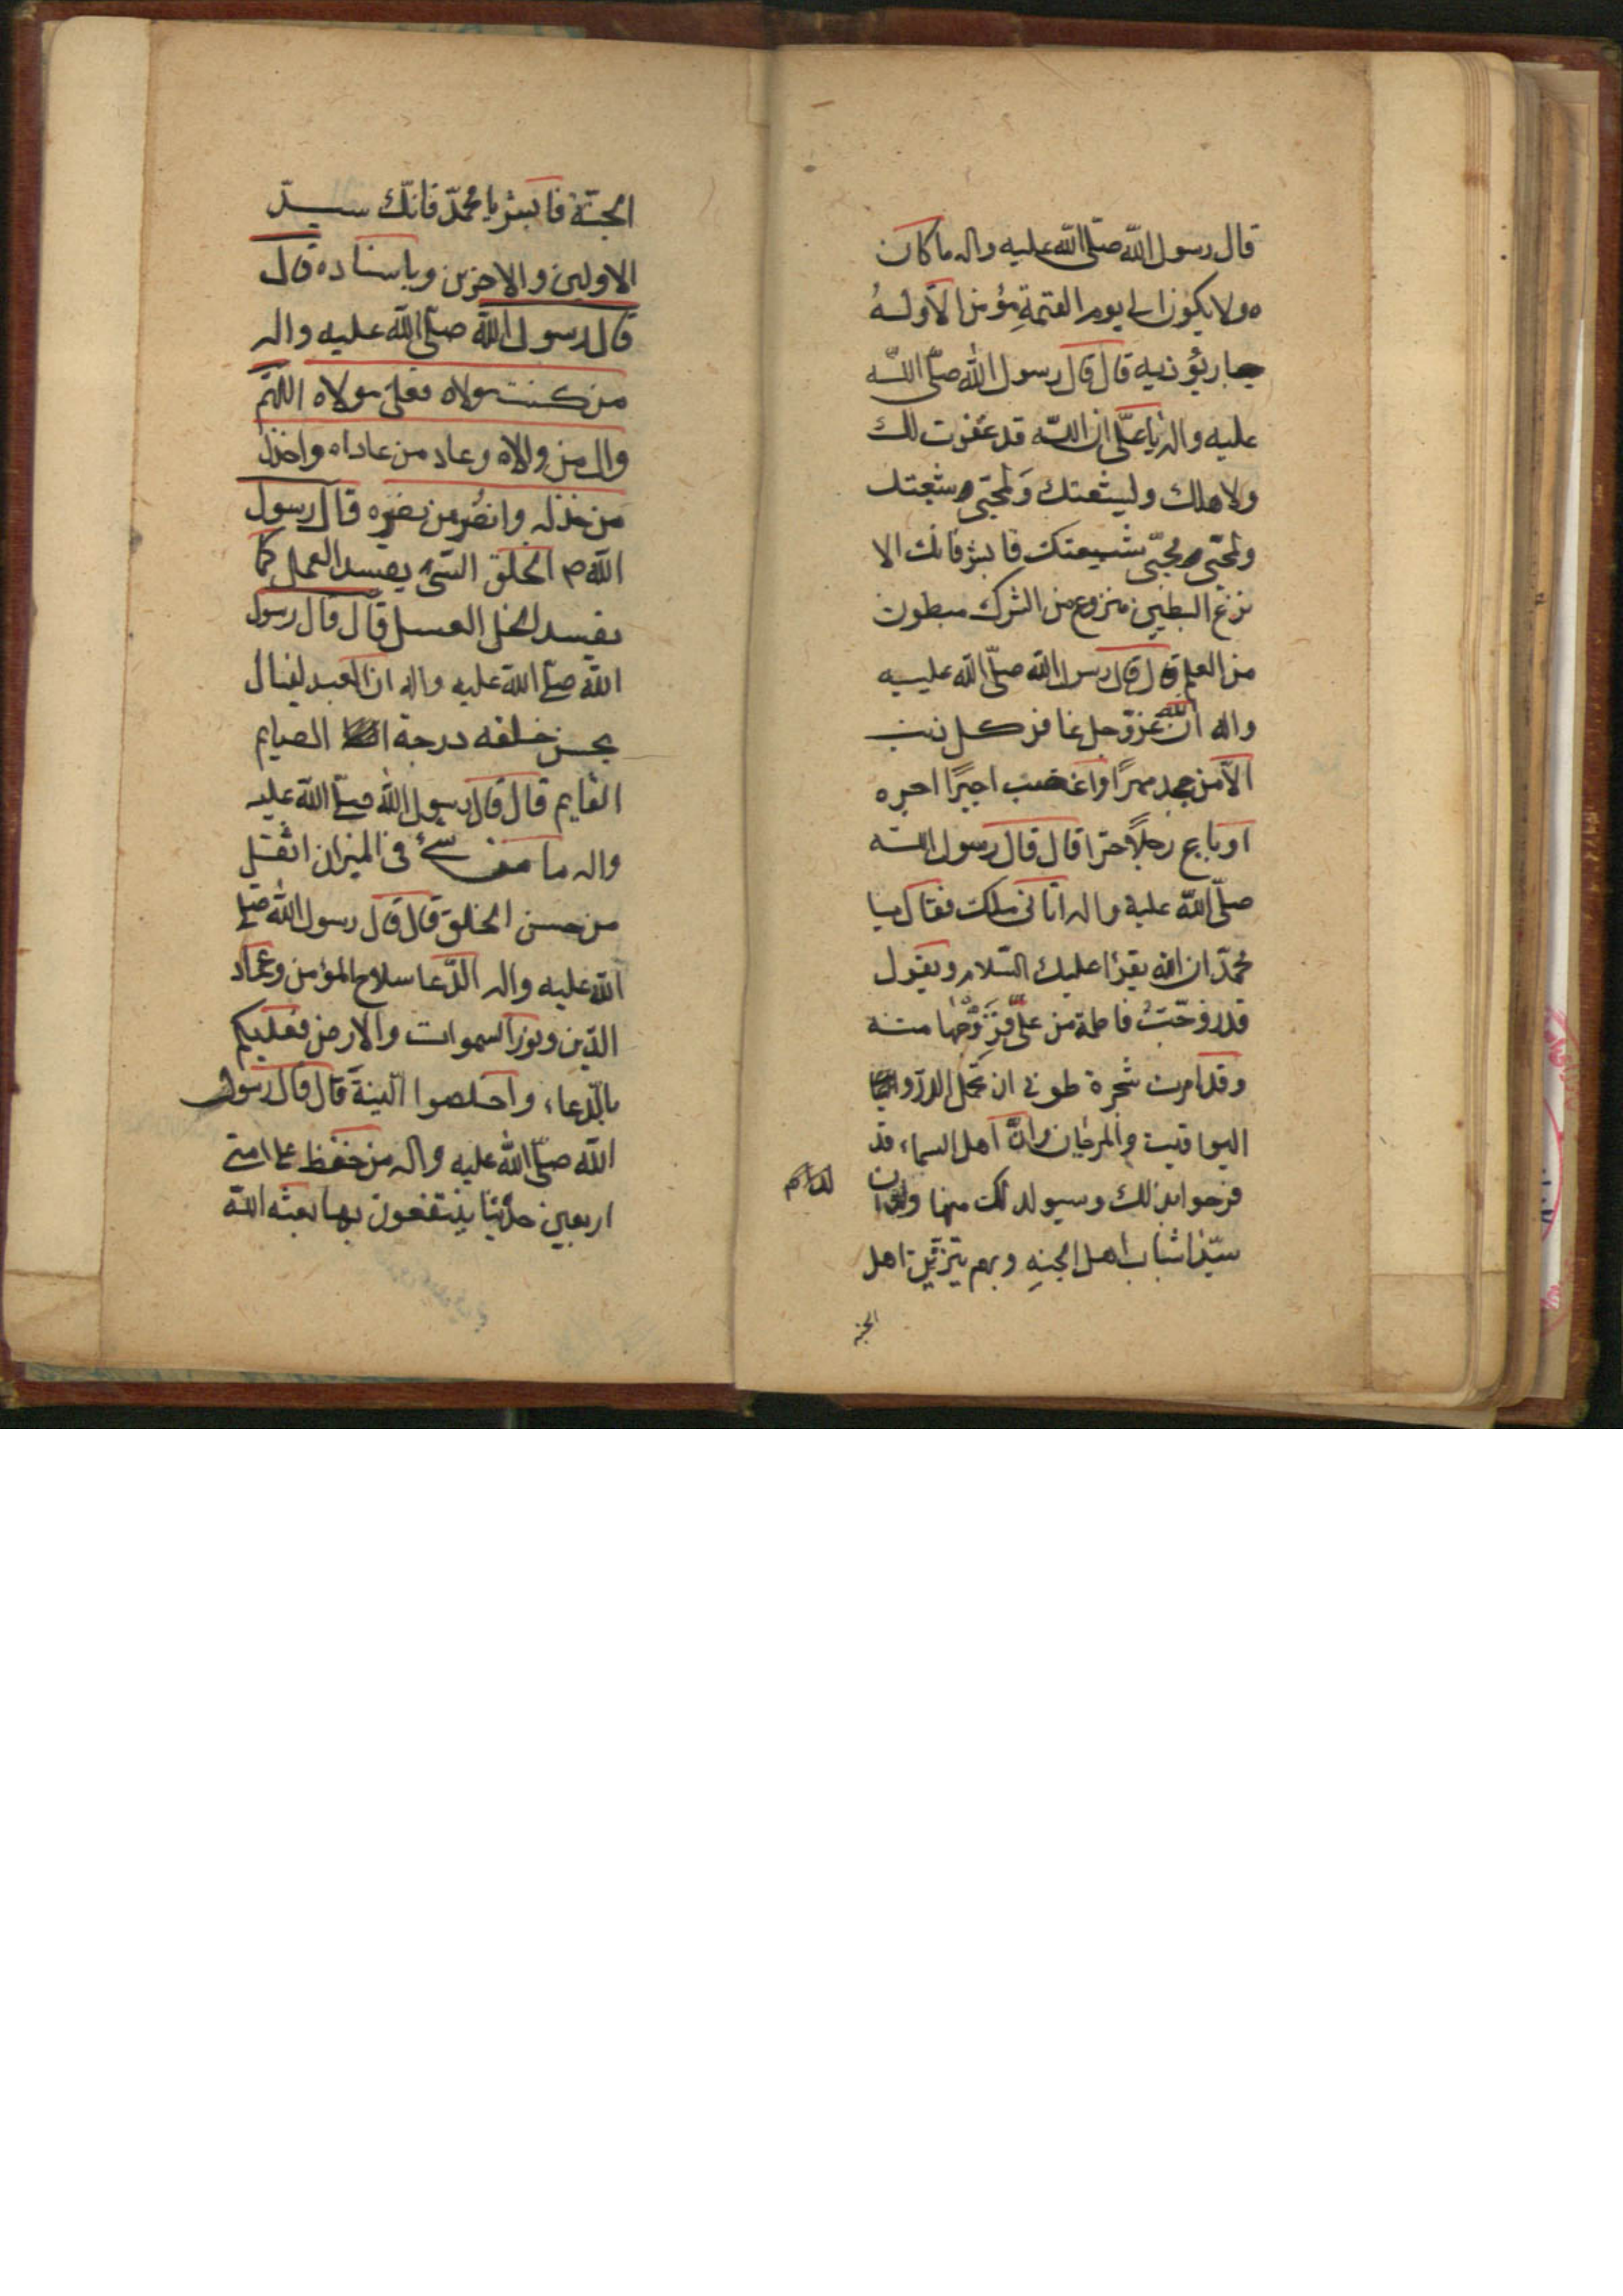 قال رسول الله صلى الله عليه واله ما كان
ولا يكون الى يوم القيمة مؤمن الا وله
جار يؤذيه قال قال رسول الله صلى الله
عليه واله يا على ان الله قد غفرت لك
ولاهلك ولشيعتك ولمحبى شيعتك
ولمحبى محبى شيعتك فابشر فانك الا
نزع البطين منزوع من الشرك مبطون
من العلم قال قال رسول الله صلى الله عليه
واله ان الله عز وجل غافر كل ذنب
الا من جحد مهرا او اغتصب اجيرا اجره
او باع رجلا حرا قال قال رسول الله
صلى الله عليه واله اتانى ملك فقال يا
محمد ان الله يقرا عليك السلام ويقول
قد زوجت فاطمة من على فزوجها منه
وقد امرت شجرة طوبى ان تحمل الدر و
اليواقيت والمرجان وان اهل السماء قد
فرحوا بذلك وسيولد لك منها ولدان
سيدا شباب اهل الجنه وبهم يتزين اهل
الجنه
الجنة فابشر يا محمد فانك سيد
الاولين والاخرين وباسناده قال
قال رسول الله صلى الله عليه واله
من كنت مولاه فعلى مولاه اللهم
وال من والاه وعاد من عاداه واخذل
من خذله وانصر من نصره قال رسول
الله ص الخلق السئ يفسد العمل كما
يفسد الخل العسل قال قال رسول
الله صلى الله عليه واله ان العبد لينال
بحسن خلقه درجة الصايم
القايم قال قال رسول الله صلى الله عليه
واله ما من شئ فى الميزان اثقل
من حسن الخلق قال قال رسول الله صلى
الله عليه واله الدعا سلاح المؤمن وعماد
الدين ونور السموات والارض فعليكم
بالدعاء واخلصوا النية قال قال رسول
الله صلى الله عليه واله من حفظ على امتى
اربعين حديثا ينتفعون بها بعثه الله